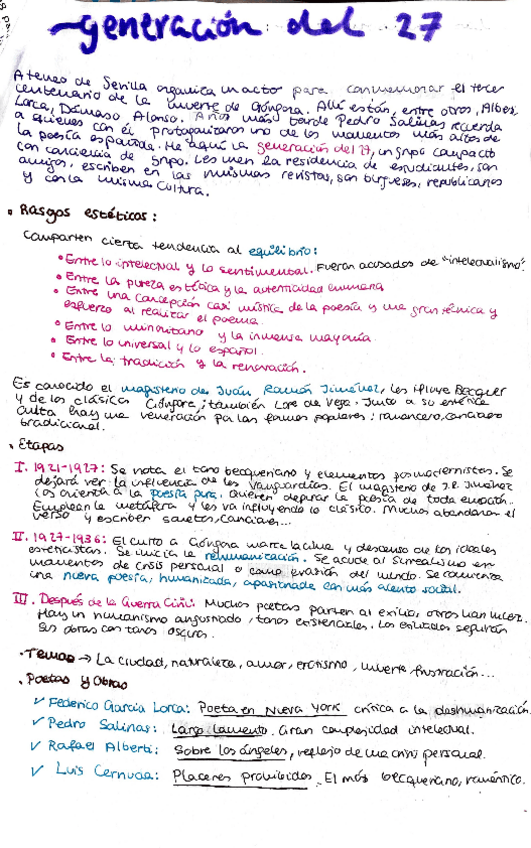 generación del 27
Ateneo de Sevilla organiza un actor para conmemorar el tercer
centenario de la muerte de Góngora. Allí están, entre otros, Alberti,
Lorca, Dámaso Alonso. Años más tarde Pedro Salinas recuerda
a quienes con él protagonizaron uno de los momentos más altos de
la poesía española. He aquí la generación del 27, un grupo compacto
con conciencia de grupo. Les unen la residencia de estudiantes, son
amigos, escriben en las mismas revistas, son burgueses, republicanos
y con la misma cultura.
• Rasgos estéticos:
Comparten cierta tendencia al equilibrio:
• Entre lo intelectual y lo sentimental. Fueron acusados de "intelectualismo".
• Entre la pureza estética y la autenticidad humana
• Entre una concepción casi mística de la poesía y una gran técnica y
esfuerzo al realizar el poema.
• Entre lo minoritario y la inmensa mayoría
• Entre lo universal y lo español.
• Entre la tradición y la renovación.
Es conocido el magisterio de Juán Ramón Jiménez, les influye Becquer
y de los clásicos Góngora; también Lope de Vega. Junto a su estética
culta hay una veneración por las formas populares: romancero, cancionero
tradicional.
• Etapas
I. 1921-1927: Se nota el tono becqueriano y elementos posmodernistas. Se
dejará ver la influencia de las vanguardias. El magisterio de J.R. Jiménez
los orienta a la poesía pura. Quieren depurar la poesía de toda emoción.
Emplean la metáfora y les va influyendo lo clásico. Muchos abandonan el
verso y escriben sonetos, canciones...
II. 1927-1936: El culto a Góngora marca la cima y descenso de los ideales
esteticistas. Se inicia la rehumanización. Se acude al Surrealismo en
momentos de crisis personal o como evasión del mundo. Se comienza
una nueva poesía, humanizada, apasionada con más acento social.
III. Después de la Guerra Civil: Muchos poetas parten al exilio, otros han muerto.
Hay un humanismo angustiado, tonos existenciales. Los exiliados seguirán
sus obras con tonos oscuros.
• Temas → La ciudad, naturaleza, amor, erotismo, muerte, frustración...
• Poetas y Obras
✓ Federico García Lorca: Poeta en Nueva York crítica a la deshumanización.
✓ Pedro Salinas: Largo lamento. Gran complejidad intelectual.
✓ Rafael Alberti: Sobre los ángeles, reflejo de una crisis personal.
✓ Luis Cernuda: Placeres prohibidos. El más becqueriano, romántico.